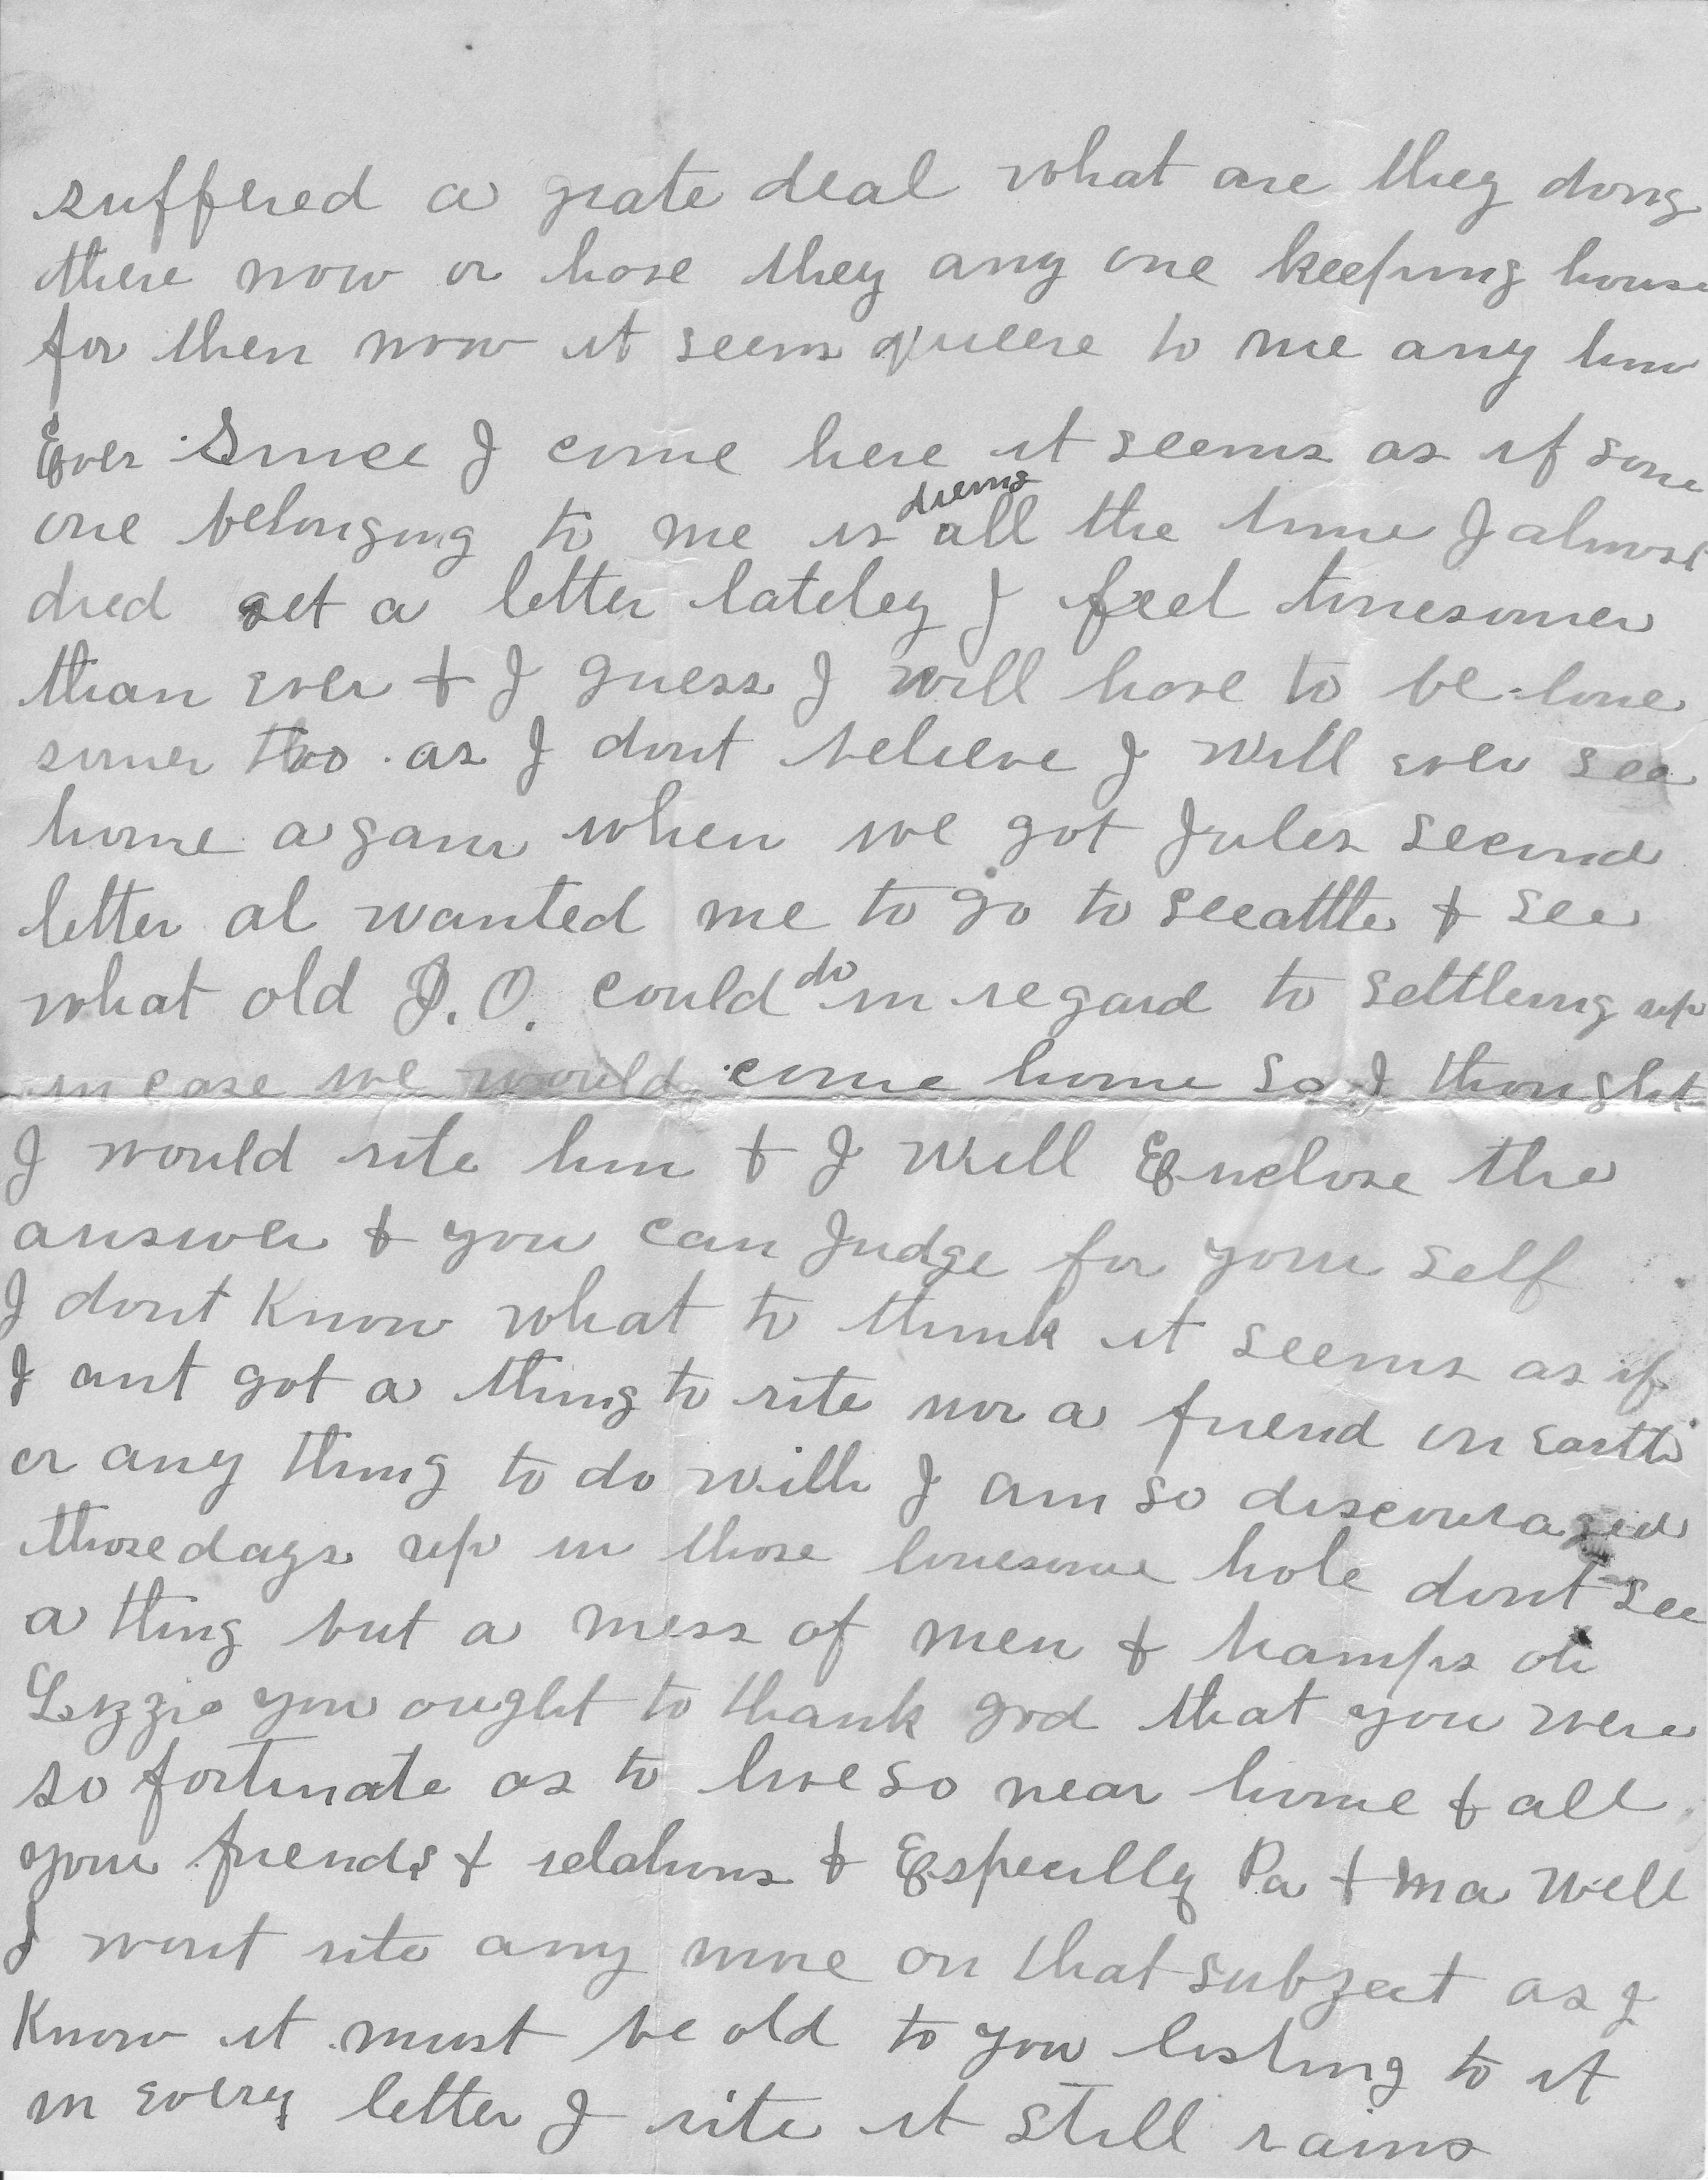 suffered a grate deal what are they doing
there now or have they any one keeping house
for then now it seems queere to me any how
Ever Since I come here it seems as if some
one belonging to me is all the time I almost
dred get a letter lateley I feel lonesomer
than ever & I guess I will have to be lone
somer tho as I dont believe I will ever see
home again when we got Jules second
letter al wanted me to go to Seeattle & see
what old J.O. could do in regard to settleing up
in case we would come home so I thought
I would rite him & I will Enclose the
answer & you can Judge for your self
I dont Know what to think it seems as if
I aint got a thing to rite nor a friend on earth
or any thing to do with I am so discouraged
those days up in those lonesome hole dont see
a thing but a mess of men & tramps oh
Lizzie you ought to thank god that you were
so fortunate as to live so near home & all
your friends & relations & Especilly Pa & ma well
I wont rite any more on that subject as I
Know it must be old to you listing to it
in every letter I rite it still rains